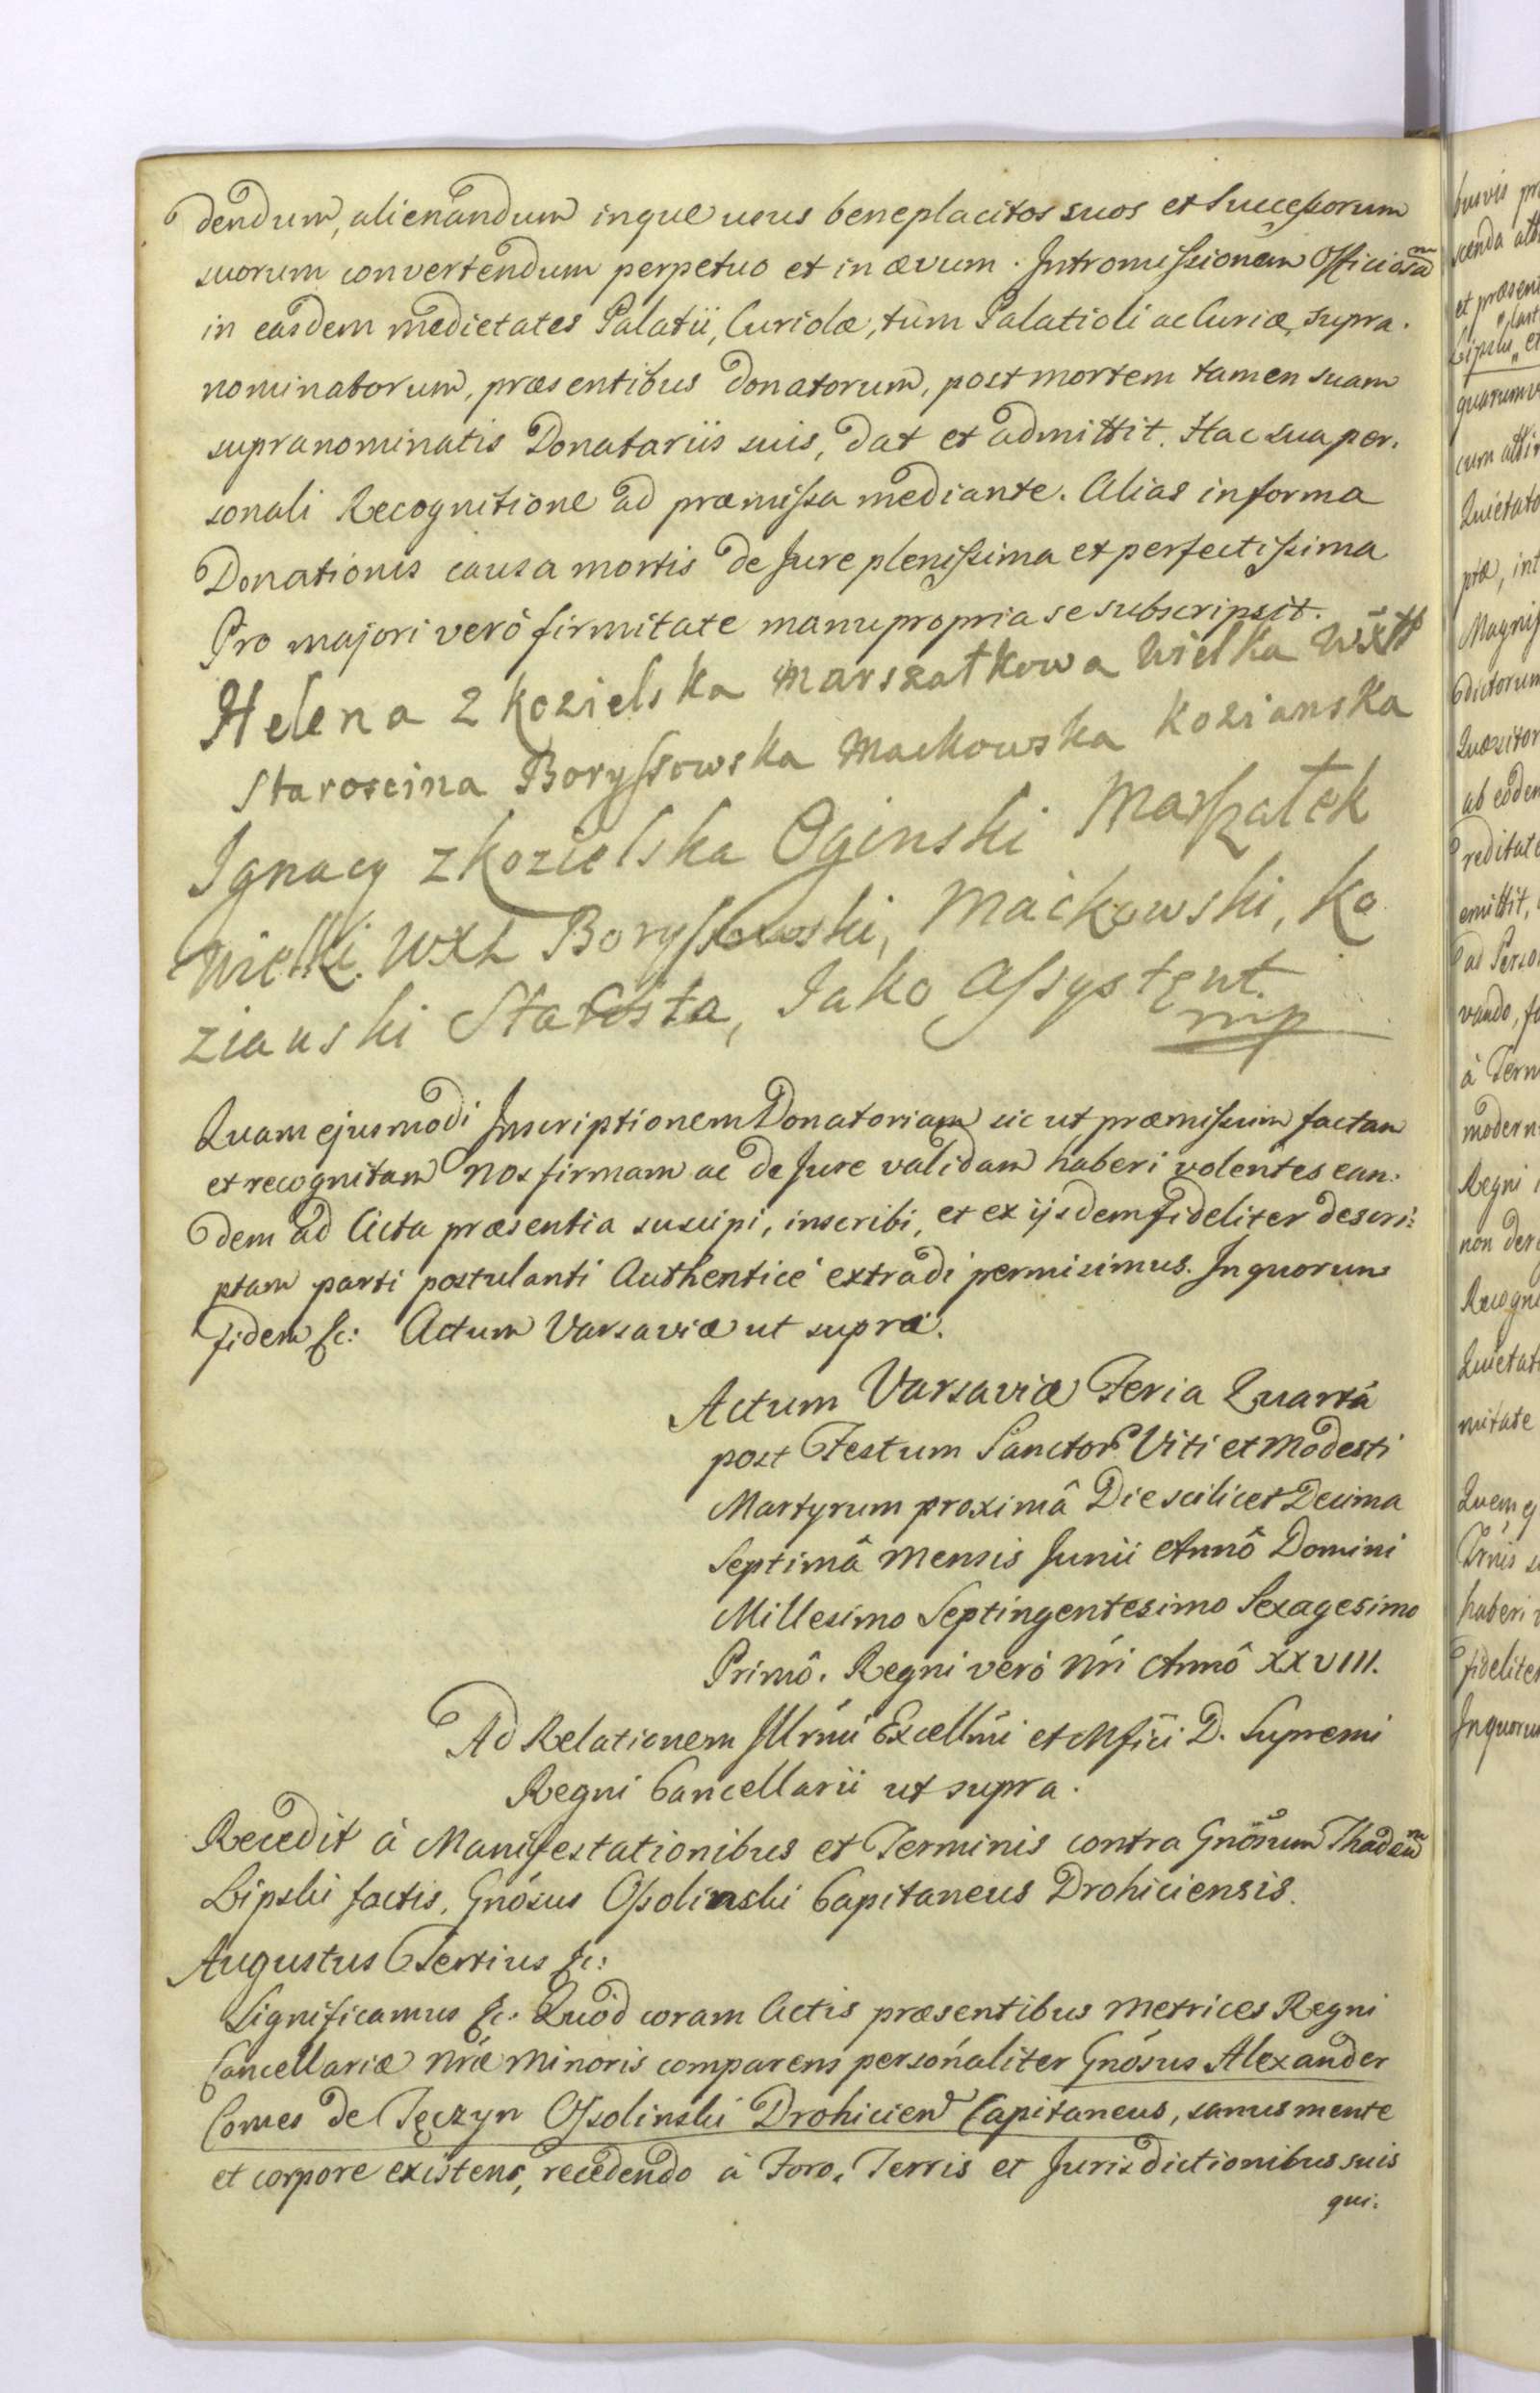 dendum, alienandum inque usus beneplacitos suos et Successorum
suorum convertendum perpetuo et in ævum. Intromissionem Officiosam
in easdem medietates Palatii, Curiolæ, tum Palatioli ac Curiæ, supra.
nominatorum, præsentibus donatorum, post mortem tamen suam
supranominatis Donatariis suis, dat et admittit. Hac sua per.
sonali Recognitione ad præmissa mediante. Alias in forma
Donationis causa mortis de Jure plenissima et perfectissima
Pro majori verò firmitate manu propria se subscripsit.
Helena z Kozielska Marszałkowa Wielka WXL
Staroscina Boryssowska Mackowska Kozianska
Ignacy z Kozielska Oginski Marszałek
Wielki WXL Boryssowski, Maickowski, Ko
zianski Starosta, Jako Assystent.
mp
Quam ejusmodi Inscriptionem Donatoriam sic ut præmissum factam
et recognitam Nos firmam ac de Jure validam haberi volentes ean:
dem ad Acta præsentia suscipi, inscribi, et ex ijsdem fideliter descri:
ptam parti postulanti Authenticè extradi permisimus. In quorum
fidem &c: Actum Varsaviæ ut supra.
Actum Varsaviæ Feria Quartâ
post Festum Sanctor Viti et Modesti
Martyrum proximâ Die scilicet Decima
Septimâ Mensis Junii Annô Domini
Millesimo Septingentesimo Sexagesimo
Primô. Regni verò Nri Annô XXVIII.
Ad Relationem Illrmi Excellmi et Mfici D. Supremi
Regni Cancellarii ut supra.
Recedit à Manifestationibus et Terminis contra Gnosum Thadeum
Lipski factis, Gnosus Ossolinski Capitaneus Drohiciensis.
Augustus Tertius &c:
Significamus &c. Quòd coram Actis præsentibus Metrices Regni
Cancellariæ Nræ Minoris comparens personaliter Gnosus Alexander
Comes de Tęczyn Ossolinski Drohicien Capitaneus, sanus mente
et corpore existens, recedendo à Foro, Terris et Jurisdictionibus suis
qui.